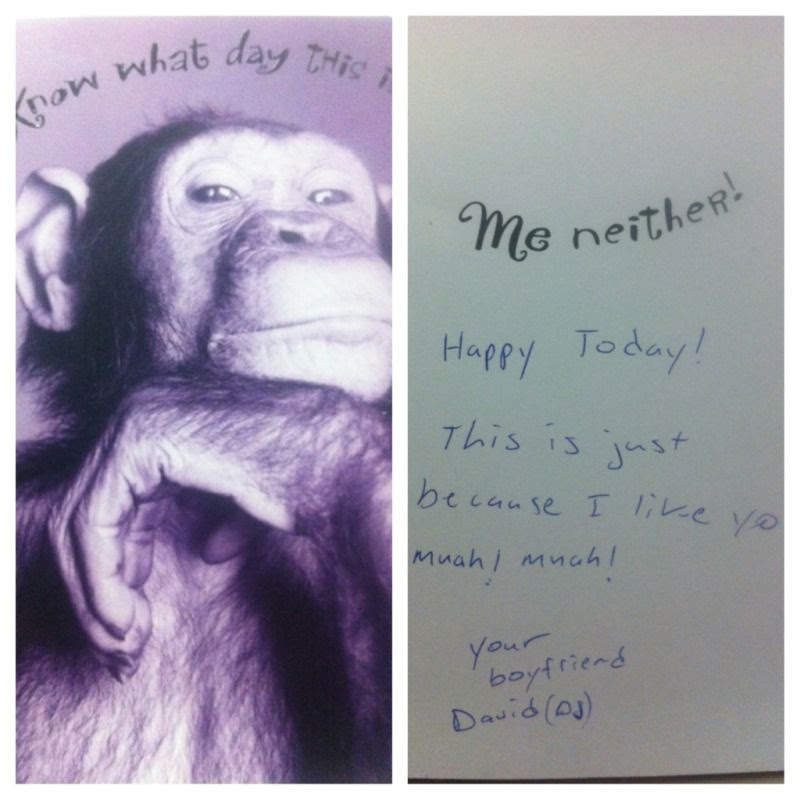 Know what day this i
Me neither!
Happy Today!
This is just
because I like yo
muah! muah!
your
boyfriend
David (DJ)